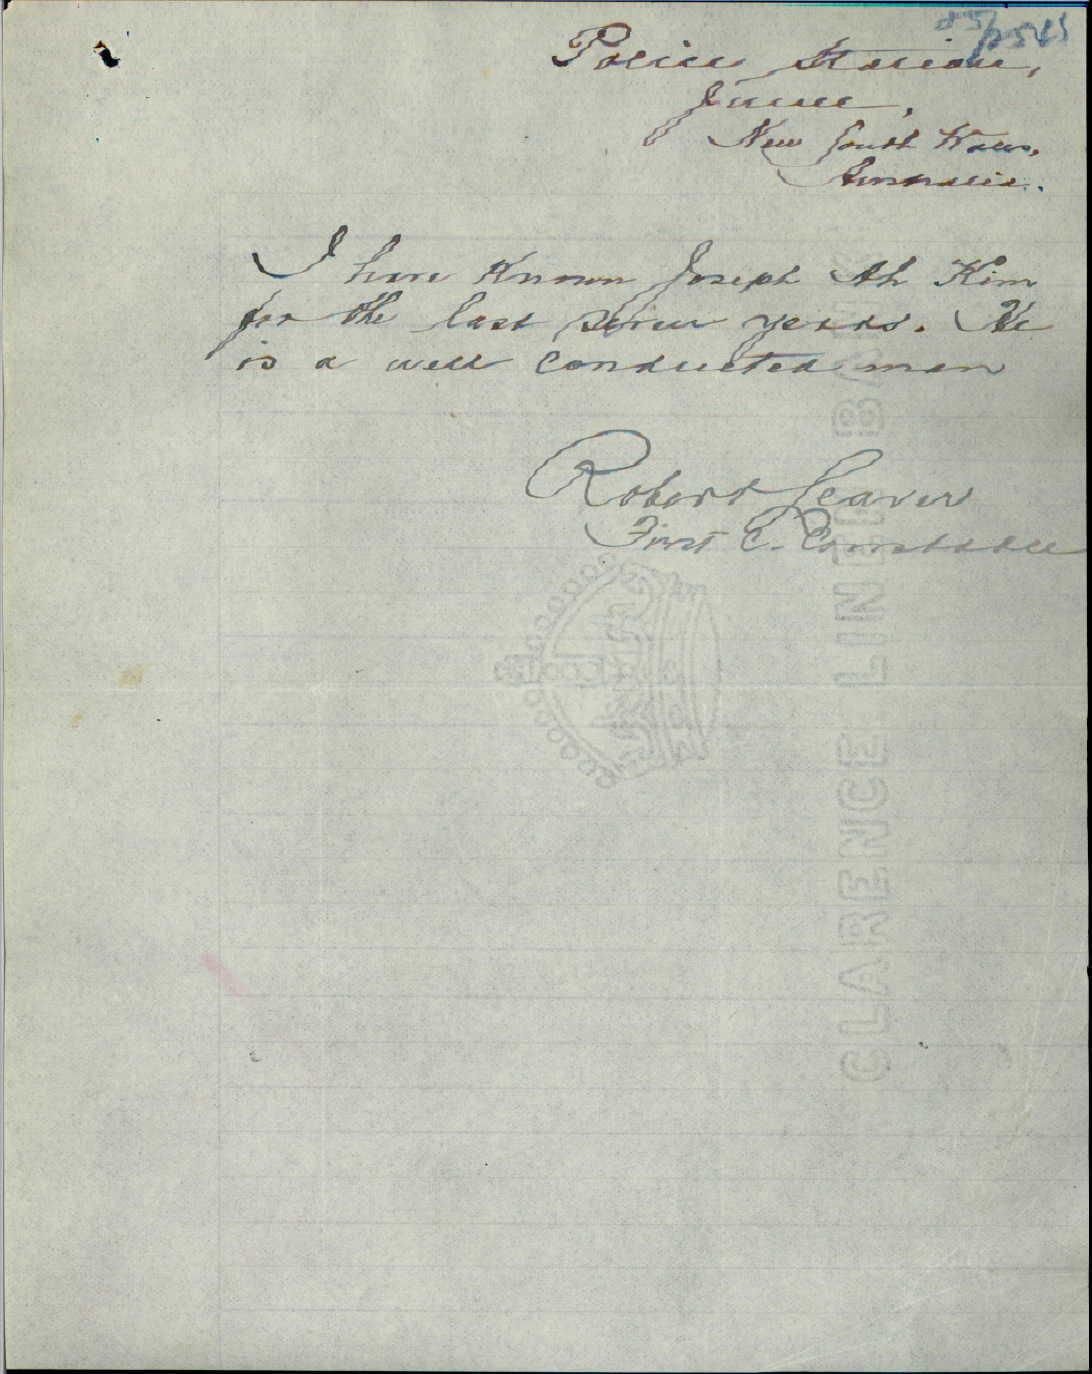 Police Station,
Junee,
New South Wales,
Australia.
I have known Joseph Ah Kim
for the last seven years. He
is a well conducted man
Robert Leaver
First C. Constable
CLARENCE LINEN B